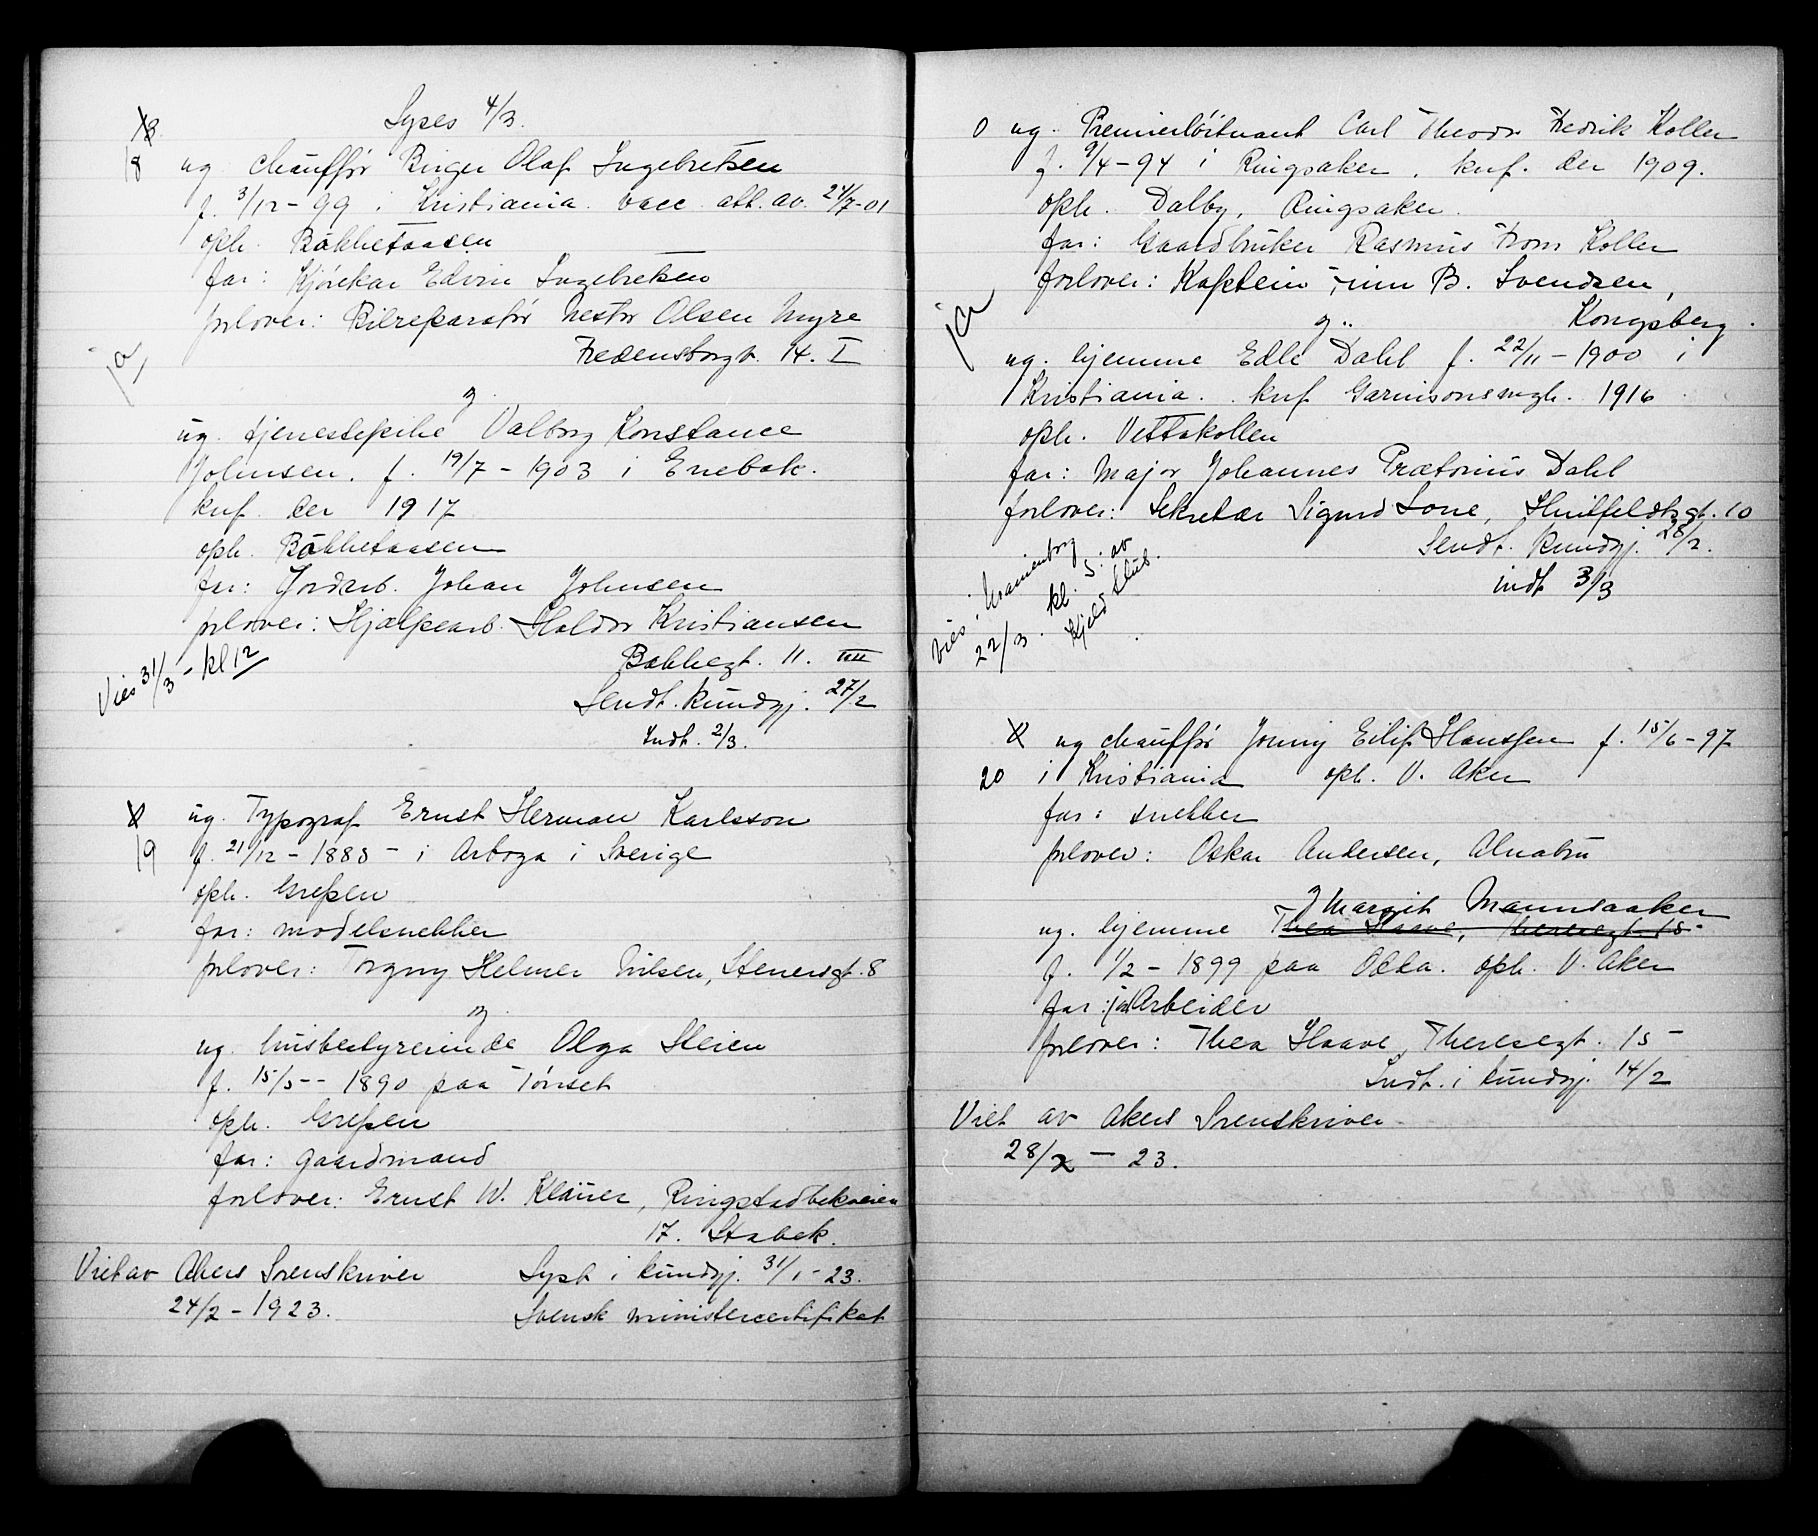 Lyses 4/3.
18 ug. chauffør Birger Olaf Ingebretsen
f. 3/12 - 99 i Kristiania. vacc. att. av 24/7-01
oph. Bakketaasen
far: Kjørekar Edvin Ingebretsen
forlover: Bilreparatør Nestor Olsen Myre
Fredensborgv. 14. I
ja
g.
ug. tjenestepike Valborg Konstance
Johnsen. f. 19/7 - 1903 i Enebak.
knf. der 1917
oph. Bakketaasen
far: Jordarb. Johan Johnsen
forlover: Hjælpearb. Haldor Kristiansen
Bakkegt. 11. III
Vies 31/3 - kl 12
Sendt. kundgj. 27/2
Indt. 2/3.
19 ug. Typograf Ernst Herman Karlsson
f. 21/12 - 1888 - i Arboga i Sverige
oph. Grefsen
far: modelsnekker
forlover: Torgny Helmer Nilsen, Stenersgt. 8
g.
ug. husbestyrerinde Olga Steien
f. 15/5 - 1890 paa Tønset
oph. Grefsen
far: gaardmand
forlover: Ernst W. Klauer, Ringstadbekveien
17. Stabek.
Viet av Akers Sorenskriver
24/2 - 1923.
Lyst i kundgj. 31/1 - 23.
Svensk ministercertifikat
0 ug. Premierløitnant Carl Theodor Fredrik Koller
f. 9/4 - 94 i Ringsaker. knf. der 1909.
oph. Dalby, Ringsaker.
far: Gaardbruker Rasmus From Koller
forlover: Kaptein Finn B. Svendsen,
Kongsberg.
ja
g.
ug. hjemme Edle Dahl f. 22/11 - 1900 i
Kristiania. knf Garnisonsmgh. 1916
oph. Vettakollen
far: Major Johannes Prætorius Dahl
forlover: Sekretær Sigurd Lone, Huitfeldtsgt. 10
Sendt. kundgj. 28/2.
indt 3/3
Vies i Uranienborg
22/3. kl. 5: av
Kjeld Stub.
ug chauffør Jonny Eilif Hanssen f. 15/6 - 97
20 i Kristiania oph. V. Aker
far: snekker
forlover: Oskar Andersen, Alnabru
g Margit Mannsaaker
ug. hjemme Thea Haave, Theresegt. 15
f. 1/2 - 1899 paa Odda. oph. V. Aker
far: Arbeider
forlover: Thea Haave, Theresegt. 15
Indt. i kundgj. 14/2
Viet av Akers Sorenskriver
28/2 - 23.